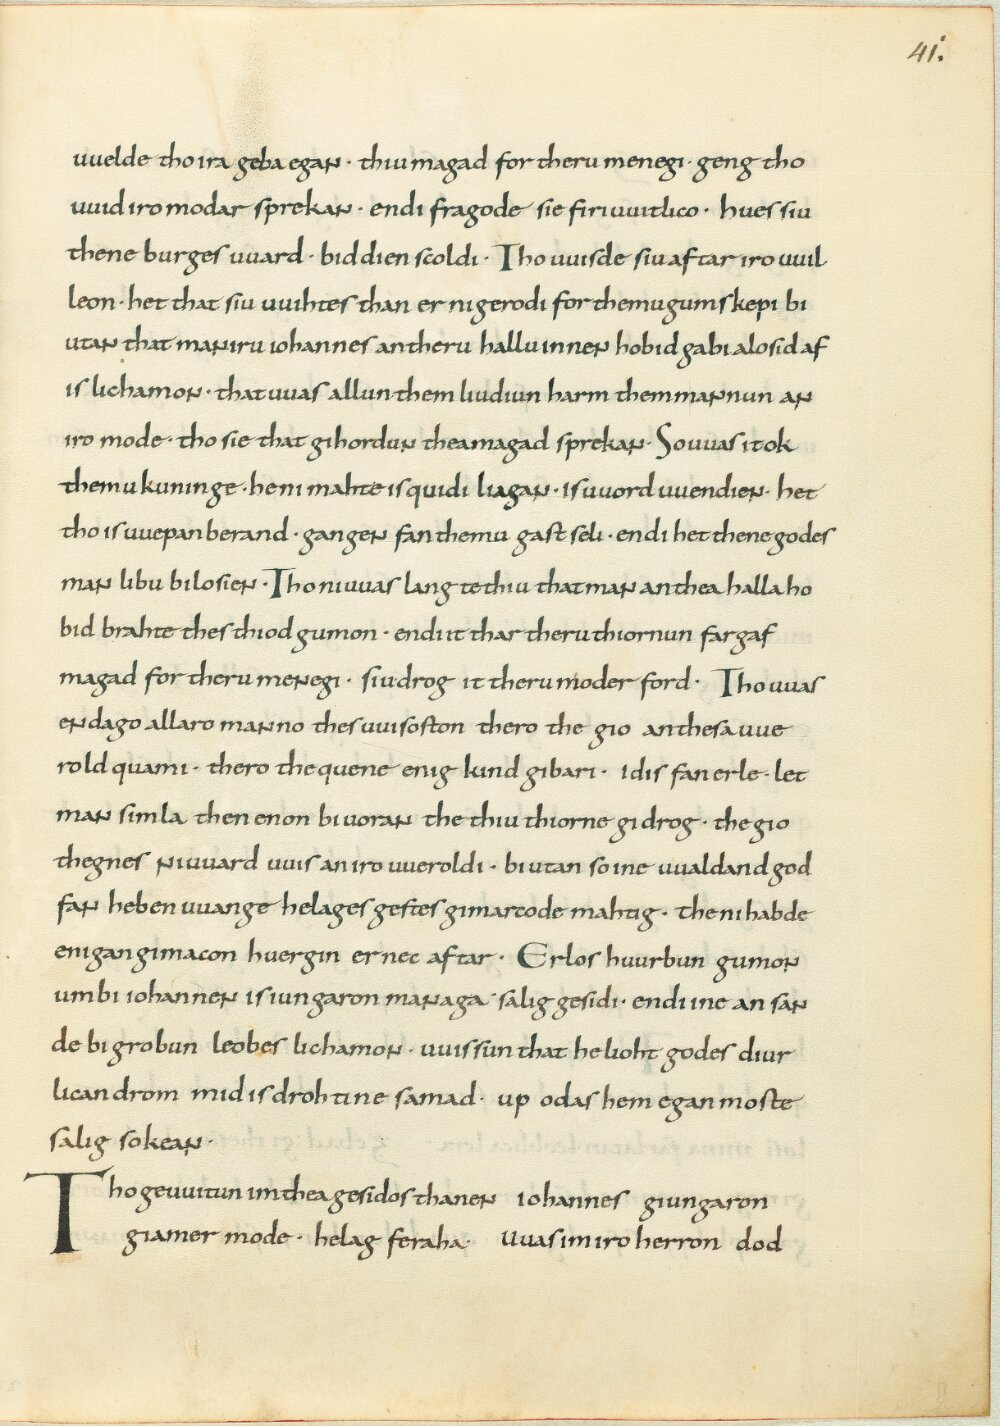 41.
uuelde tho ira geba egan · thiu magad for theru menegi · geng tho
uuid iro modar sprekan · endi fragode sie firiuuitlico · hues siu
thene burges uuard · biddien scoldi · Tho uuisde siu aftar iro uuil
leon · het that siu uuihtes than er ni gerodi for themu gumskepi bi
utan that man iru iohannes an theru hallu innen hobid gabi alosid af
is lichamon · that uuas allun them liudiun harm them mannun an
iro mode · tho sie that gihordun thea magad sprekan · So uuas it ok
themu kuninge · he ni mahte is quidi liagan · is uuord uuendien · het
tho is uuepanberand · gangen fan themu gastseli · endi het thene godes
man libu bilosien · Tho ni uuas lang te thiu that man an thea halla ho
bid brahte thes thiodgumon · endi it thar theru thiornun fargaf
magad for theru menegi · siu drog it theru moder ford · Tho uuas
endago allaro manno thes uuisoston thero the gio an thesa uue
rold quami · thero the quene enig kind gibari · idis fan erle · let
man simla then enon biuoran the thiu thiorne gidrog · the gio
thegnes ni uuard uuis an iro uueroldi · biutan so ine uualdand god
fan hebenuuange helages gestes gimarcode mahtig · the ni habde
enigan gimacon huergin er nec aftar · Erlos huurbun gumon
umbi iohannen is iungaron managa salig gesidi · endi ine an san
de bigrobun leobes lichamon · uuissun that he lioht godes diur
lican drom mid is drohtine samad · up odas hem egan moste
salig sokean ·
Tho geuuitun im thea gesidos thanen iohannes giungaron
giamer mode · helag feraha · Uuas im iro herron dod